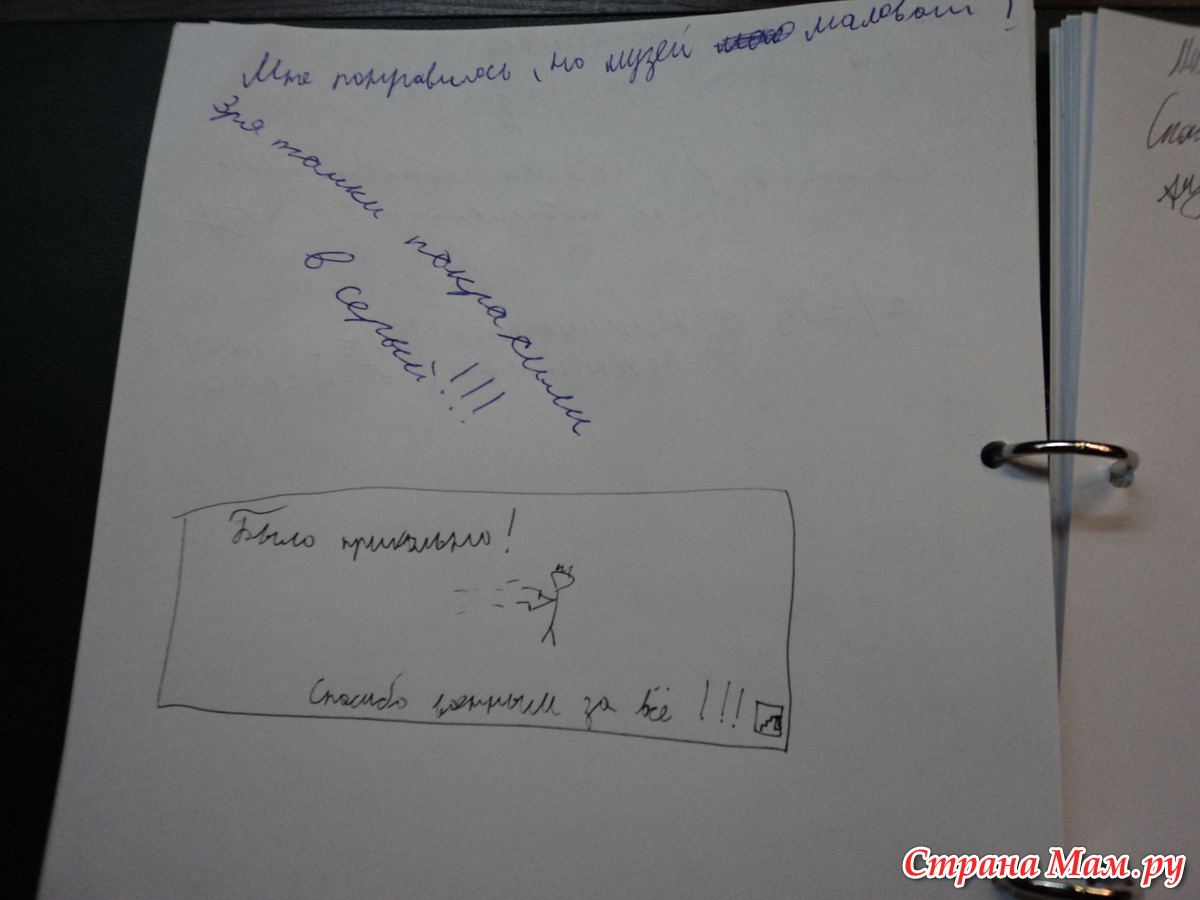 Мне понравилось, но музей маловат!
Зря танки покрасили
в серый!!!
Было прикольно!
Спасибо военным за всё!!!
Страна Мам.ру